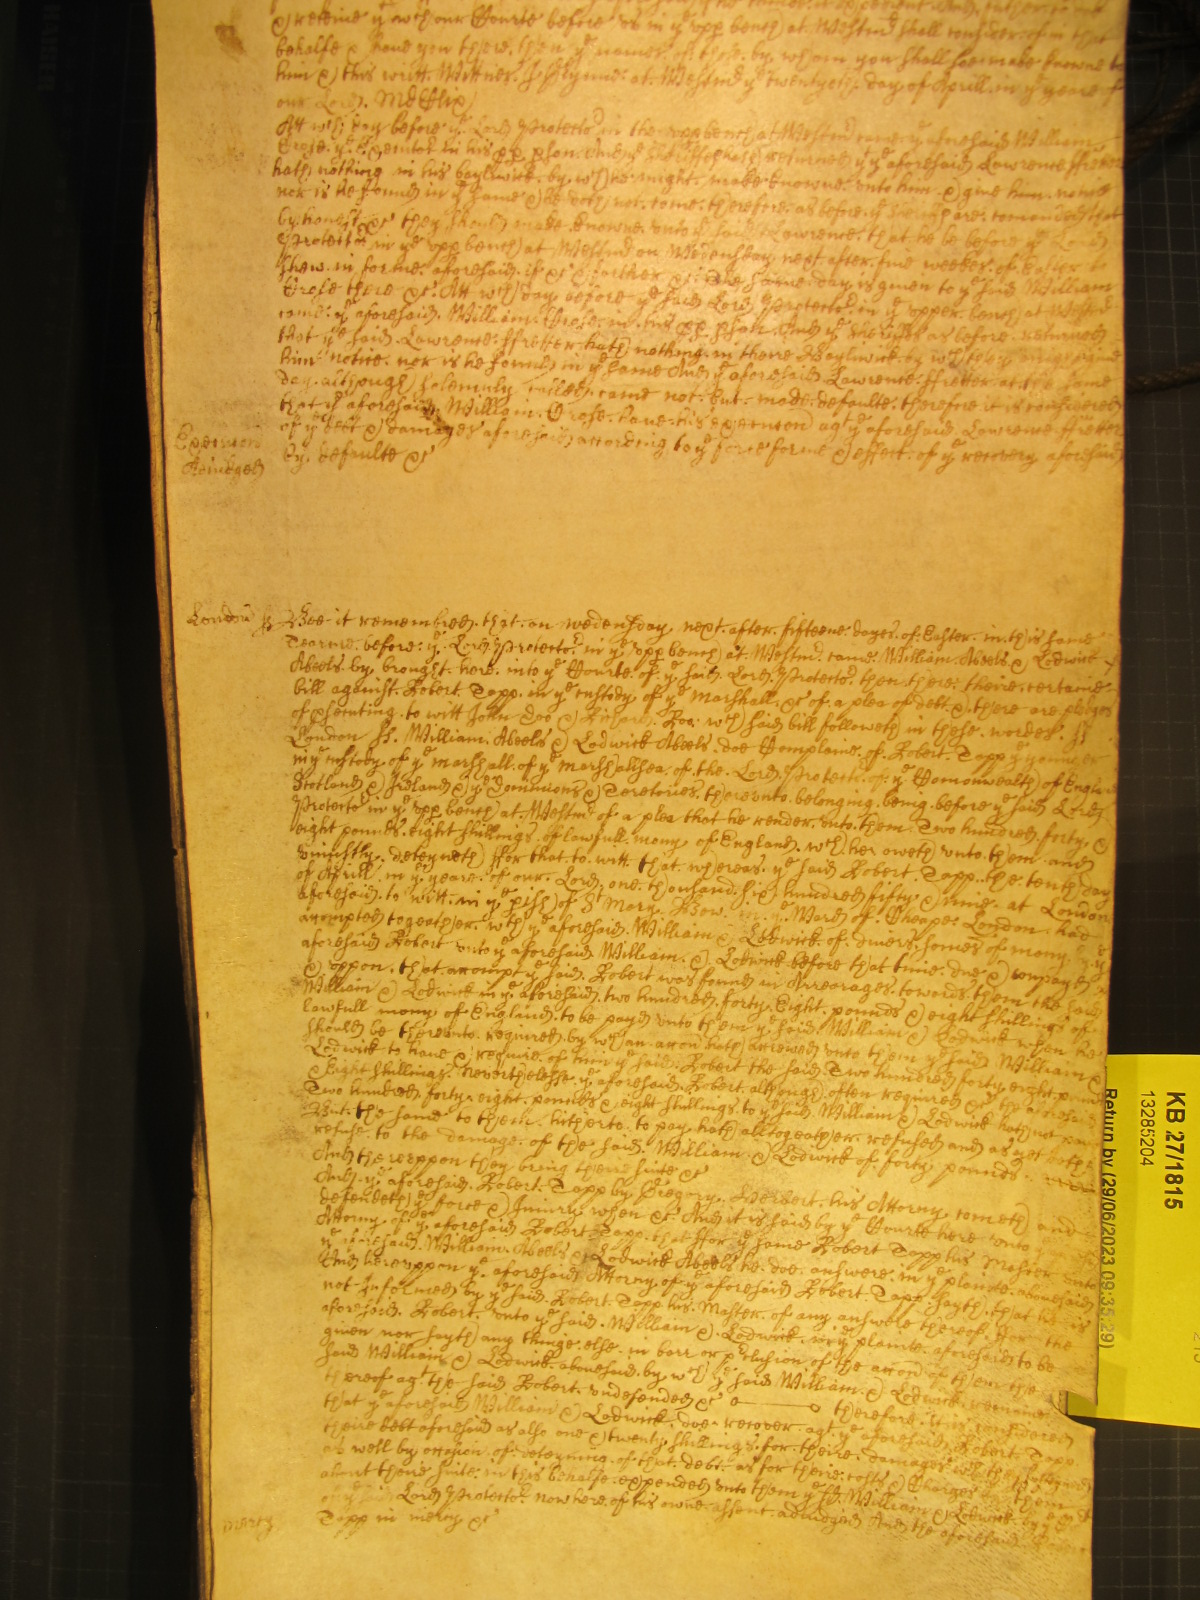 & receive yᵉ wᶜʰ our Courte before us in yᵉ upp bench at Westmʳ shall consider of in that
behalfe & have you there then yᵉ names of those by whom you shall soe make knowne to
him & this writt. Wittnes at Westmʳ yᵉ day of Aprill in yᵉ yeare of
our Lord MDCLIX
Att wᶜʰ day before yᵉ Lord Protectoʳ in the upp bench at Westmʳ came yᵉ aforesaid William
Crose in his pp pson And yᵉ Sheriffe returned yᵗ yᵉ aforesaid Lawrence ffretter
hath nothing in his baylywick by wᶜʰ he might make knowne unto him & give him notice
nor is he found in yᵉ same & he doth not come therefore as before yᵉ Sheriffe are comanded that
by honest &c they should make knowne unto yᵉ said Lawrence that he be before yᵉ Lord
Protectoʳ in yᵉ upp bench at Westmʳ on Wedensday next after five weekes of Easter to
shew in forme aforesaid if &c & further &c The same day is given to yᵉ said William
Crose there &c Att wᶜʰ day before yᵉ said Lord Protectoʳ in yᵉ upper bench at Westmʳ
came yᵉ aforesaid William Crose in his pp pson And yᵉ Sheriffs as before returned
that yᵉ said Lawrence ffretter hath nothing in theire Baylywick by wᶜʰ they might give
him notice nor is he found in yᵉ same And yᵉ aforesaid Lawrence ffretter at the same
day although solemnly called came not but made defaulte therefore it is considered
that yᵉ aforesaid William Crose have his execucon agᵗ yᵉ aforesaid Lawrence ffretter
of yᵉ debt & damages aforesaid according to yᵉ force forme & effect of yᵉ recovery aforesaid
by defaulte &c
Execucon
Adiudged
London ss Bee it remembred that on wedensday next after fifteene dayes of Easter in this same
Tearme before yᵉ Lord Protectoʳ in yᵉ upp bench at Westmʳ came William Abeels & Lodwick
Abeels by brought here into yᵉ Courte of yᵉ said Lord Protectoʳ then there theire certaine
bill against Robert Tapp in yᵉ custody of yᵉ Marshall &c of a plea of debt & there are pledges
of psecuting to witt John Doe & Richard Roe wᶜʰ said bill followeth in these wordes ss
London ss William Abeels & Lodwick Abeels doe Complaine of Robert Tapp yᵉ younger
in yᵉ custody of yᵉ marshall of yᵉ marshallsea of the Lord Protectoʳ of yᵉ Comonwealth of England
Scotland & Ireland & yᵉ Dominions & Teretories thereunto belonging being before yᵉ said Lord
Protectoʳ in yᵉ upp bench at Westmʳ of a plea that he render unto them Two hundred forty &
eight pounds eight shillings of lawfull mony of England wᶜʰ her oweth unto them and
uniustly deteyneth ffor that to witt that whereas yᵉ said Robert Tapp the tenth day
of Aprill in yᵉ yeare of our Lord one thousand six hundred fifty & nine at London
aforesaid to witt in yᵉ pish of Sᵗ Mary Bow in yᵉ Ward of Cheape London had
accompted togeather wᵗʰ yᵉ aforesaid William & Lodwick of divers somes of mony by yᵉ
aforesaid Robert unto yᵉ aforesaid William & Lodwick before that time due & unpayd
& uppon that accompt yᵉ said Robert was found in Arrearages towards them the said
William & Lodwick in yᵉ aforesaid two hundred forty Eight pounds & eight shillings of
lawfull mony of England to be payd unto them yᵉ said William & Lodwick when he
should be thereunto required by wᶜʰ an accon hath accrewed unto them yᵉ said William &
Lodwick to have & require of him yᵉ said Robert the said Two hundred forty eight pounds
& Eight shillings Neverthelesse yᵉ aforesaid Robert although often required &c the aforesaid
Two hundred forty eight pounds & eight shillings to yᵉ said William & Lodwick hath not paid
But the same to them hitherto to pay hath alltogeather refused and as yet doth
refuse to the damage of the said William & Lodwick of forty pounds
And thereuppon they bring theire suite &c
And yᵉ aforesaid Robert Tapp by Gregory Herbert his Attorny cometh and
defendeth yᵉ force & Iniury when &c And it is said by yᵉ Courte here unto
Attorny of yᵉ aforesaid Robert Tapp that ffor yᵉ same Robert Tapp his Master unto
yᵉ aforesaid William Abeels & Lodwick Abeels he doe answere in yᵉ plainte abovesaid
And hereuppon yᵉ aforesaid Attorny of yᵉ aforesaid Robert Tapp sayth that he is
not Informed by yᵉ said Robert Tapp his Master of any answere thereof ffor the
aforesaid Robert unto yᵉ said William & Lodwick in yᵉ plainte aforesaid to be
given nor sayth any thinge else in barr or pclusion of the accon of them the
said William & Lodwick abovesaid by wᶜʰ yᵉ said William & Lodwick remaine
thereof agᵗ the said Robert undefended &c therefore it is considered
that yᵉ aforesaid William & Lodwick doe recover agᵗ yᵉ aforesaid Robert Tapp
theire debt aforesaid as also one & twenty shillings for theire damages wᶜʰ they
as well by occasion of deteyning of that debt as for theire costs & Charges by them
about theire suite in this behalfe expended unto them yᵉ sᵈ William & Lodwick by yᵉ
Lord Protectoʳ now here of his owne assent adiudged And the aforesaid Robert
Tapp in mercy &c
mercy
KB 27/1815
13285204
Return by (29/06/2023 09:35:29)